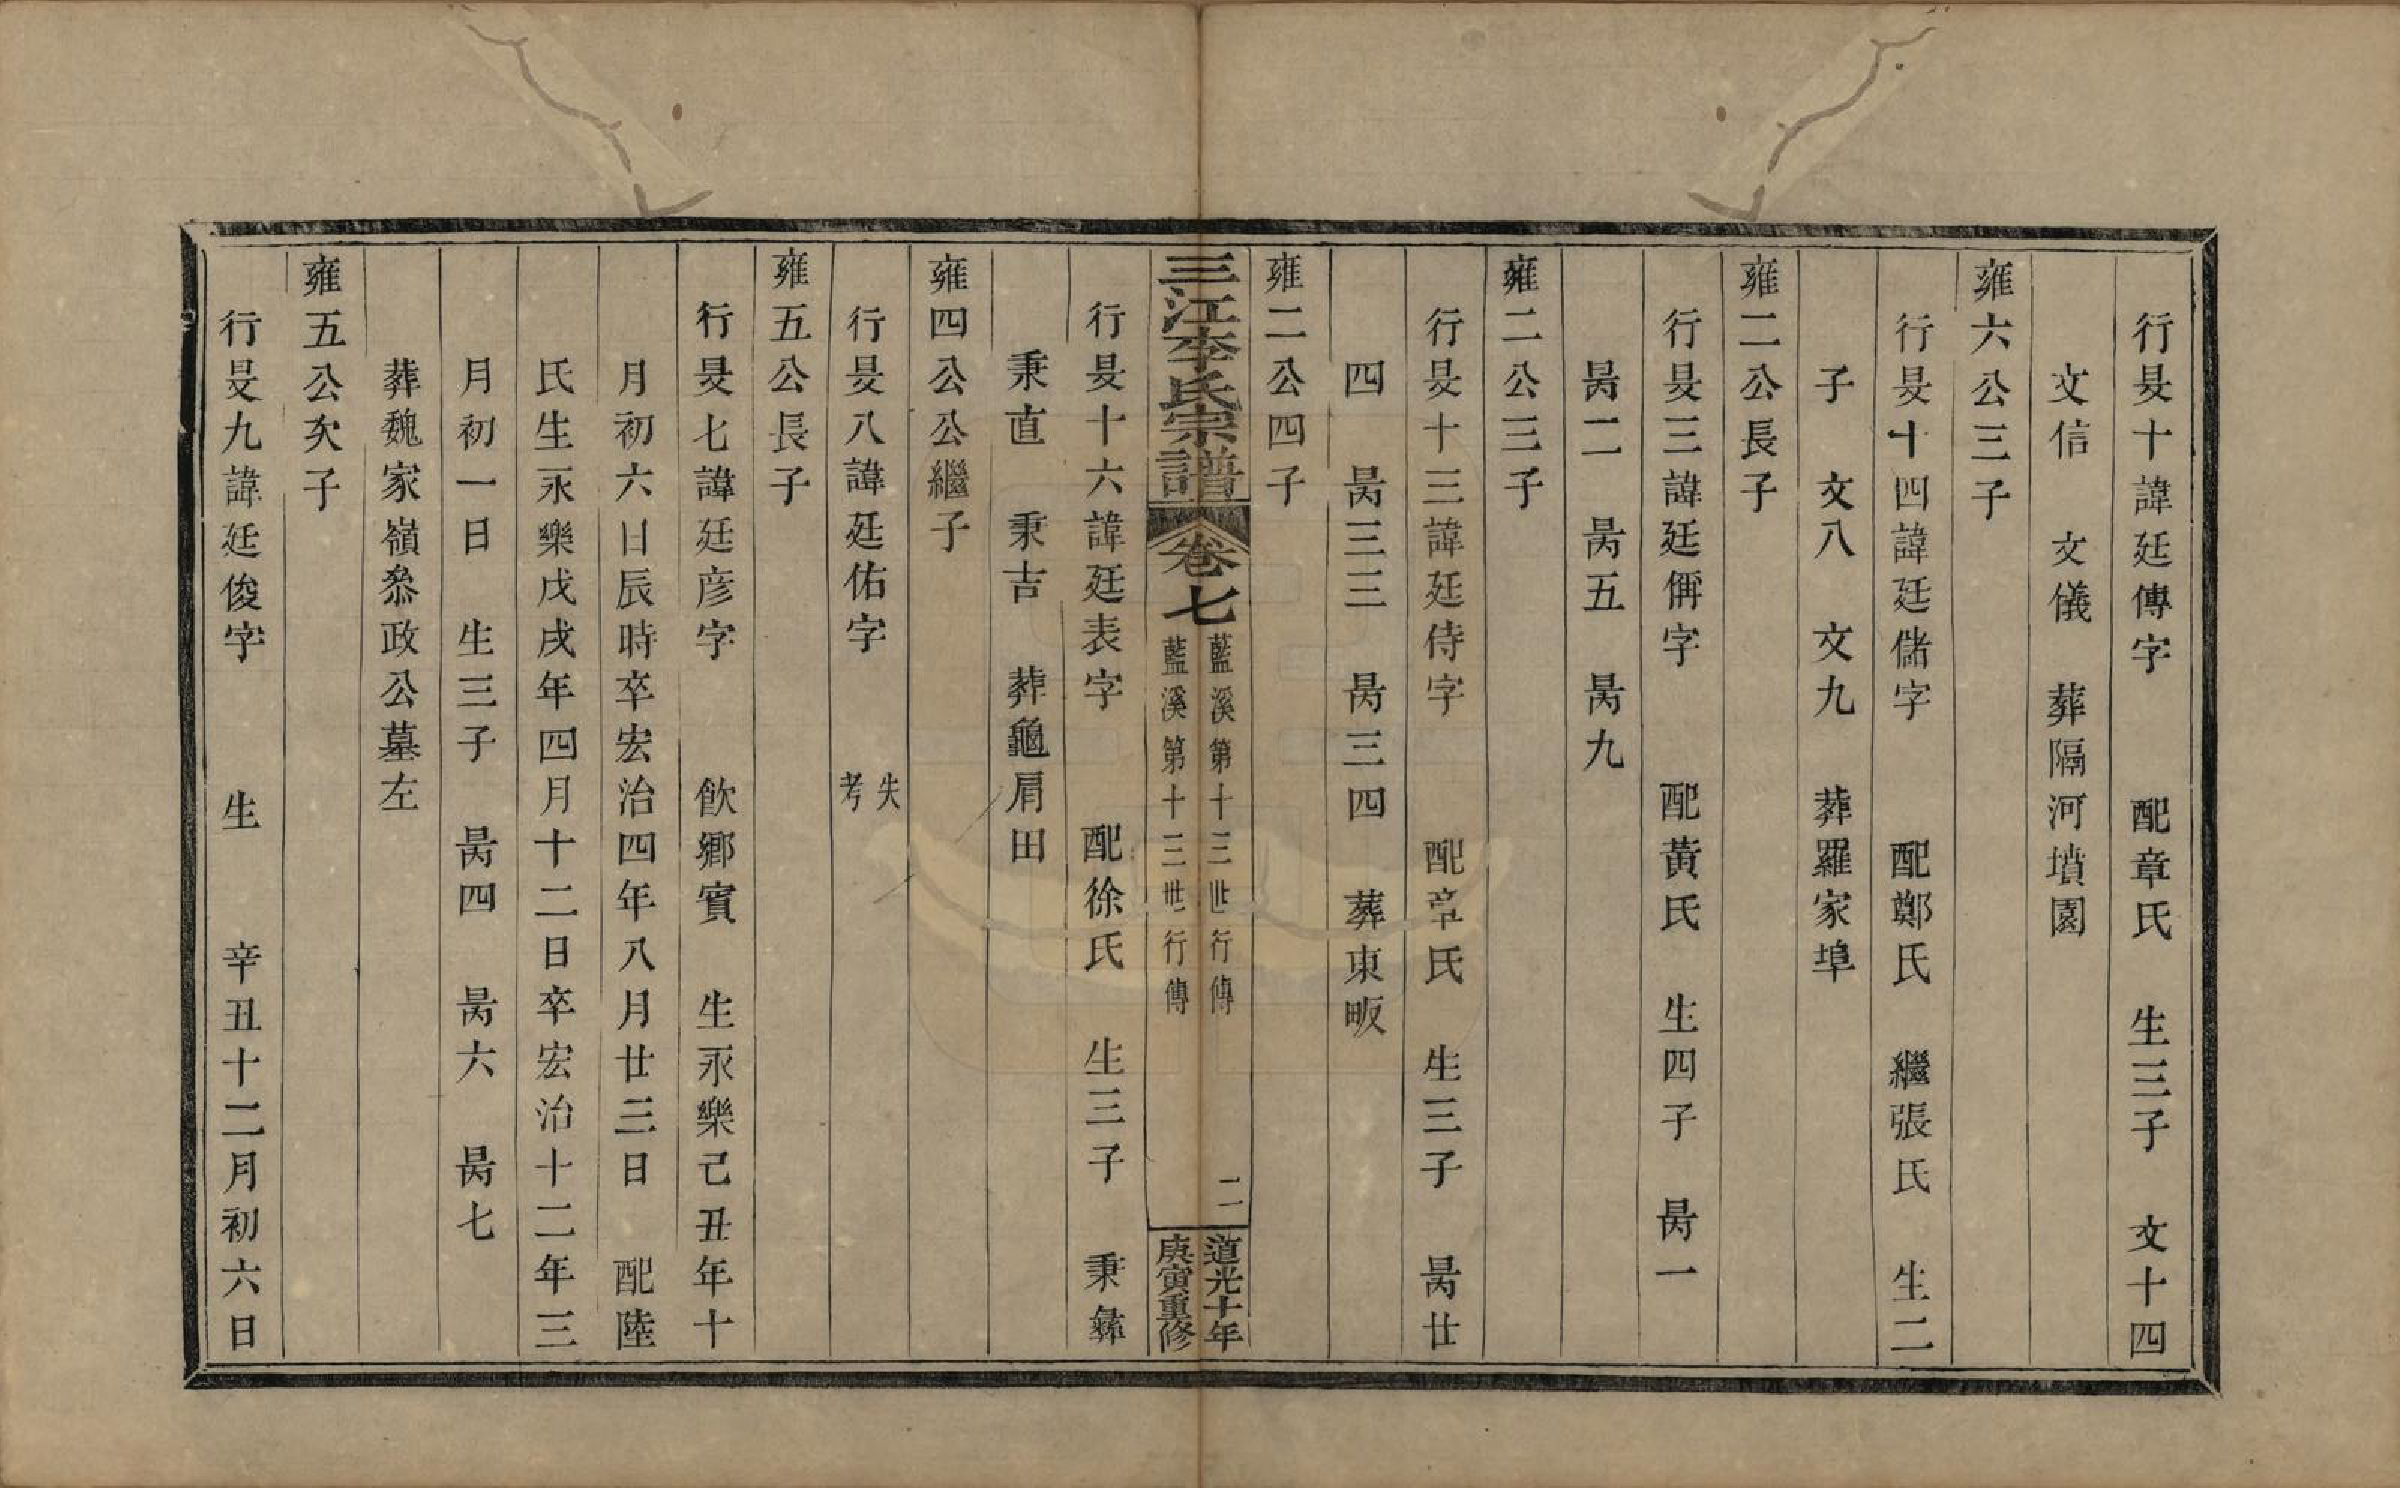 行旻十諱廷傳字　配章氏　生三子　文十四
文信　文儀　葬隔河墳園
雍六公三子
行旻十四諱廷儲字　配鄭氏　繼張氏　生二
子　文八　文九　葬羅家埠
雍二公長子
行旻三諱廷偁字　配黃氏　生四子　昺一
昺二　昺五　昺九
雍二公三子
行旻十三諱廷侍字　配章氏　生三子　昺廿
四　昺三三　昺三四　葬東畈
雍二公四子
三江李氏宗譜
卷七
藍溪第十三世行傳
藍溪第十三世行傳
二
道光十年
庚寅重修
行旻十六諱廷表字　配徐氏　生三子　秉彝
秉直　秉吉　葬龜肩田
雍四公公繼子
行旻八諱廷佑字　失考
雍五公長子
行旻七諱廷彦字　飲鄉賓　生永樂己丑年十
月初六日辰時卒宏治四年八月廿三日　配陸
氏生永樂戊戌年四月十二日卒宏治十二年三
月初一日　生三子　昺四　昺六　昺七
葬魏家嶺叅政公墓左
雍五公次子
行旻九諱廷俊字　生　辛丑十二月初六日